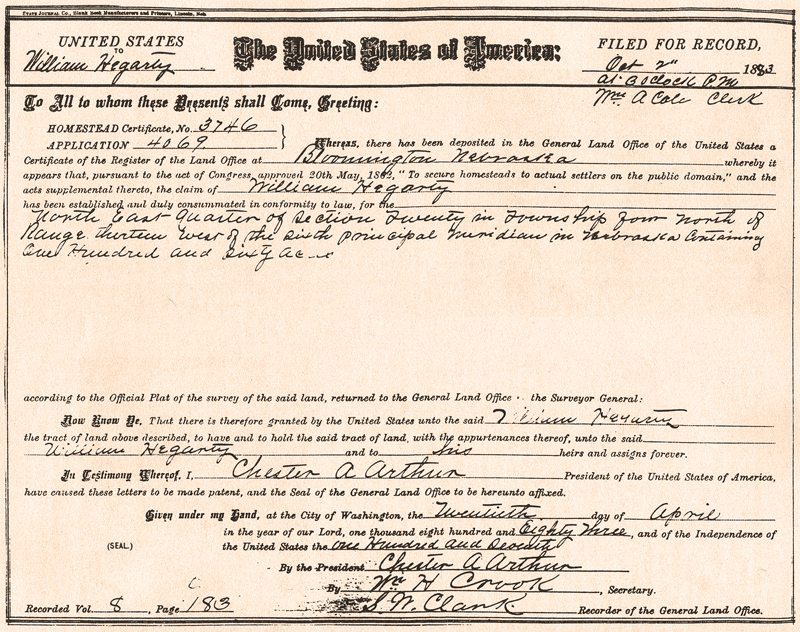 STATE JOURNAL CO., Blank Book Manufacturers and Printers, Lincoln, Neb.
UNITED STATES
TO
William Hegarty
The United States of America:
FILED FOR RECORD,
Oct 2" 1883
at 3 oclock P.M
Wm A Cole Clerk
To All to whom these Presents shall Come, Greeting:
HOMESTEAD Certificate, No. 3746
APPLICATION 4069
Whereas, there has been deposited in the General Land Office of the United States a
Certificate of the Register of the Land Office at Bloomington Nebraska whereby it
appears that, pursuant to the act of Congress approved 20th May, 1862, "To secure homesteads to actual settlers on the public domain," and the
acts supplemental thereto, the claim of William Hegarty
has been established and duly consummated in conformity to law, for the
North East quarter of Section Twenty in Township four North of
Range thirteen West of the Sixth Principal Meridian in Nebraska Containing
One Hundred and Sixty
according to the Official Plat of the survey of the said land, returned to the General Land Office the Surveyor General:
Now Know Ye, That there is therefore granted by the United States unto the said William Hegarty
the tract of land above described, to have and to hold the said tract of land, with the appurtenances thereof, unto the said
William Hegarty and to his heirs and assigns forever.
In Testimony Whereof, I, Chester A Arthur President of the United States of America,
have caused these letters to be made patent, and the Seal of the General Land Office to be hereunto affixed.
Given under my Hand, at the City of Washington, the Twentieth day of April
in the year of our Lord, one thousand eight hundred and Eighty Three, and of the Independence of
(SEAL.)
the United States the One Hundred and Seventh
By the President Chester A Arthur
By Wm H Crook, Secretary.
Recorded Vol. 8, Page 183
S. W. Clark Recorder of the General Land Office.